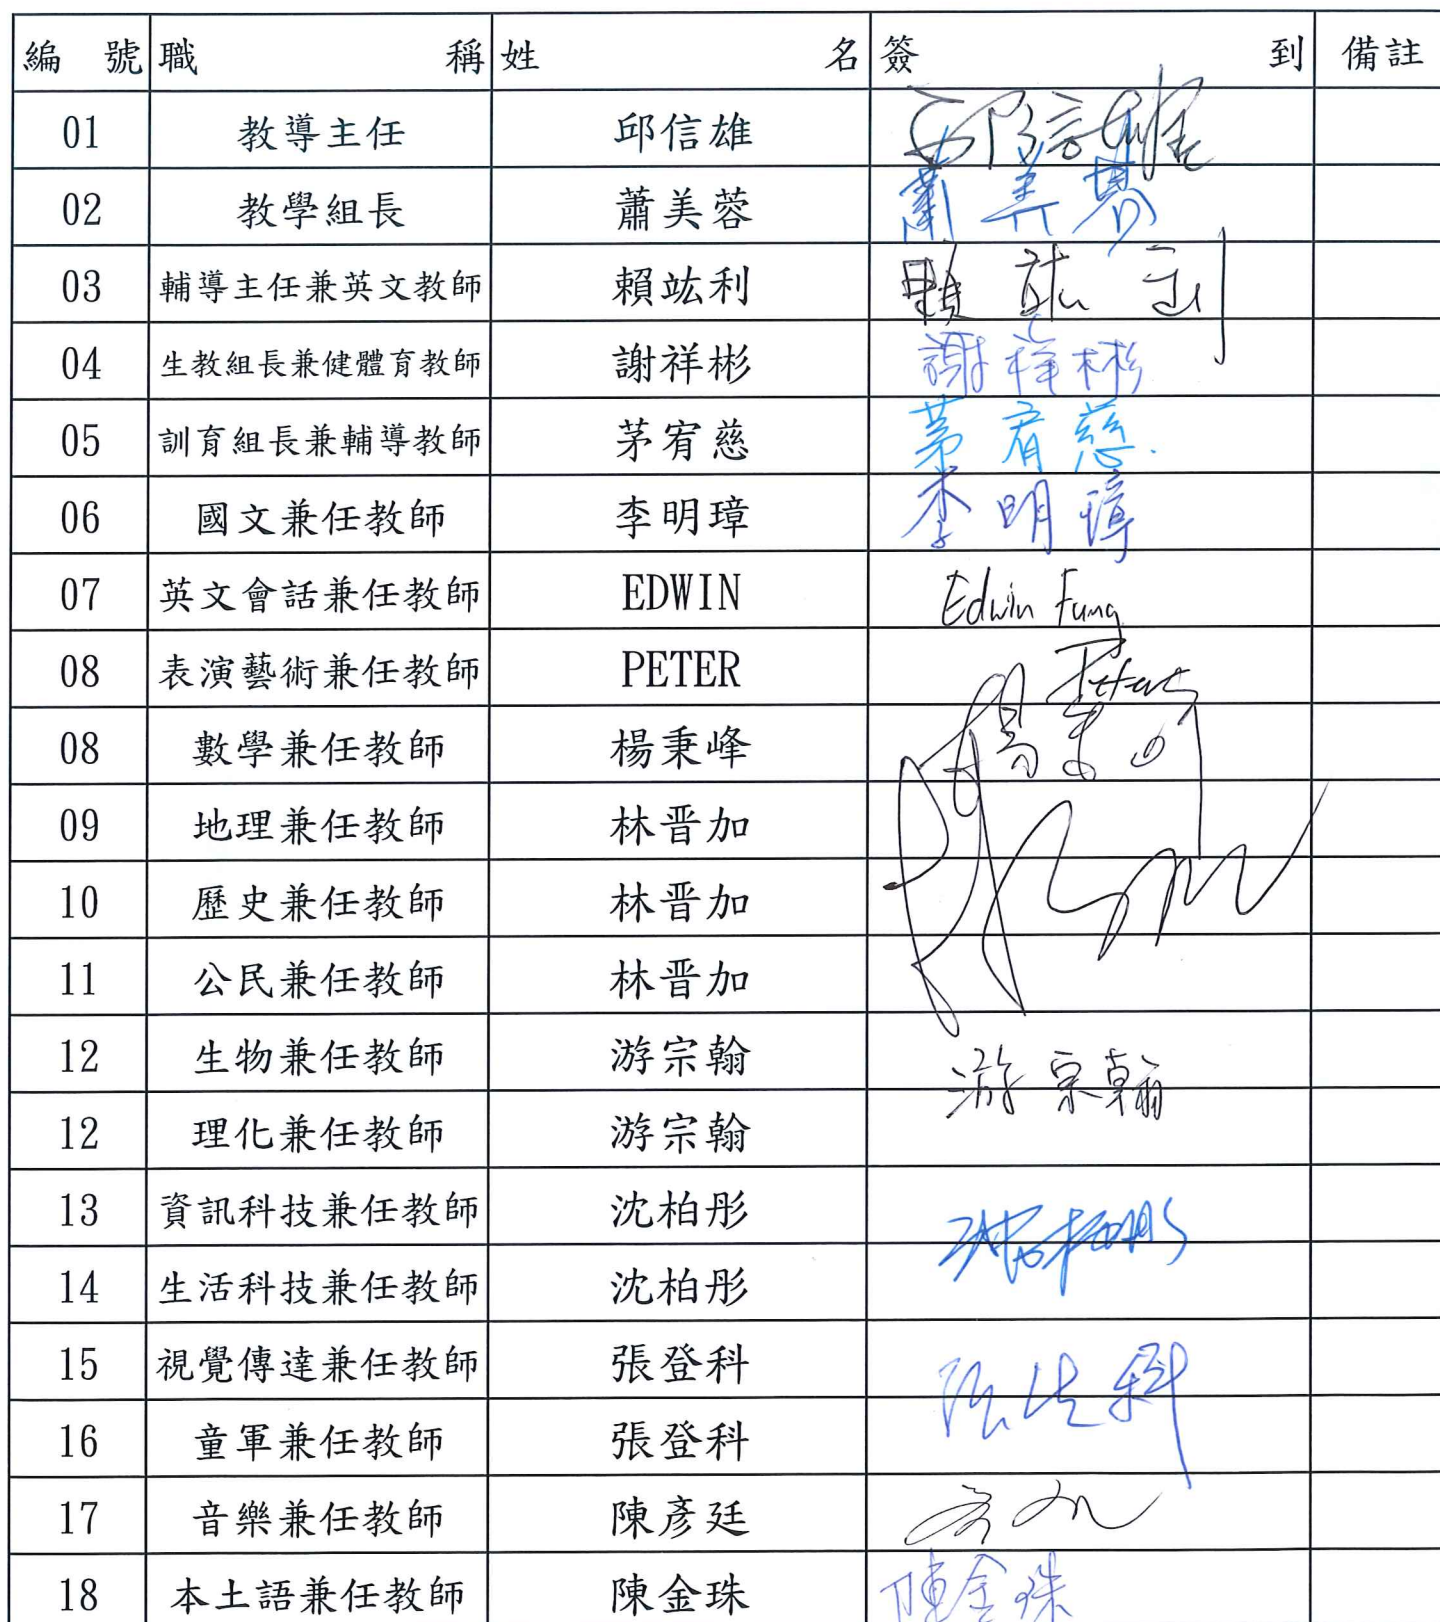 編號 職稱 姓名 簽到 備註
01 教導主任 邱信雄 邱信雄
02 教學組長 蕭美蓉 蕭美蓉
03 輔導主任兼英文教師 賴竑利 賴竑利
04 生教組長兼健體育教師 謝祥彬 謝祥彬
05 訓育組長兼輔導教師 茅宥慈 茅宥慈.
06 國文兼任教師 李明璋 李明璋
07 英文會話兼任教師 EDWIN Edwin Fung
08 表演藝術兼任教師 PETER Peter
08 數學兼任教師 楊秉峰 楊秉
09 地理兼任教師 林晋加
10 歷史兼任教師 林晋加
11 公民兼任教師 林晋加
12 生物兼任教師 游宗翰 游宗翰
12 理化兼任教師 游宗翰
13 資訊科技兼任教師 沈柏彤 沈柏彤
14 生活科技兼任教師 沈柏彤
15 視覺傳達兼任教師 張登科 張登科
16 童軍兼任教師 張登科
17 音樂兼任教師 陳彥廷
18 本土語兼任教師 陳金珠 陳金珠